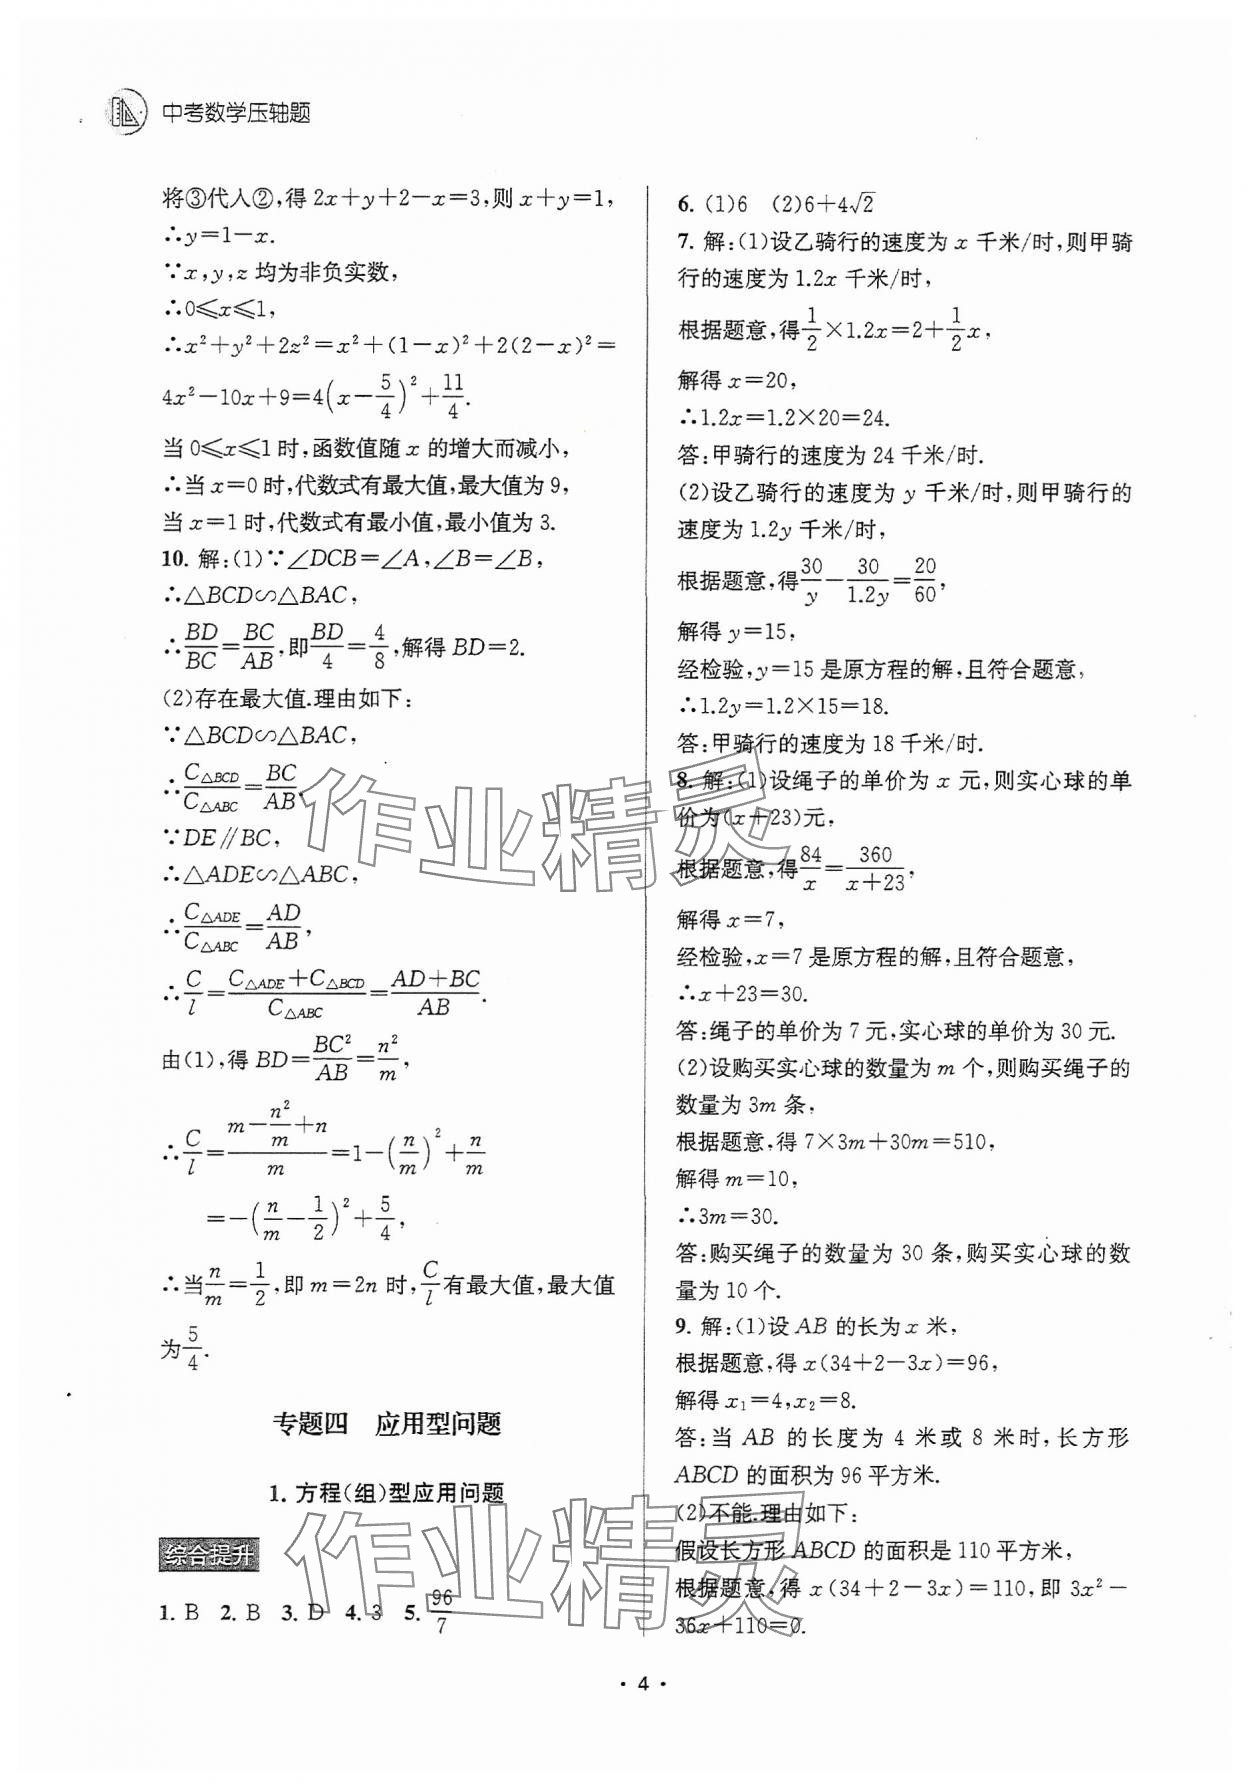 中考数学压轴题
将③代人②,得 2x+y+2-x=3,则 x+y=1,
∴y=1-x.
∵x,y,z 均为非负实数,
∴0≤x≤1,
∴x²+y²+2z²=x²+(1-x)²+2(2-x)²=
4x²-10x+9=4(x-5/4)²+11/4.
当 0≤x≤1 时,函数值随 x 的增大而减小,
∴当 x=0 时,代数式有最大值,最大值为 9,
当 x=1 时,代数式有最小值,最小值为 3.
10. 解:(1)∵∠DCB=∠A,∠B=∠B,
∴△BCD∽△BAC,
∴BD/BC=BC/AB,即BD/4=4/8,解得 BD=2.
(2)存在最大值.理由如下:
∵△BCD∽△BAC,
∴C△BCD/C△ABC=BC/AB.
∵DE∥BC,
∴△ADE∽△ABC,
∴C△ADE/C△ABC=AD/AB,
∴C/l=(C△ADE+C△BCD)/C△ABC=(AD+BC)/AB.
由(1),得 BD=BC²/AB=n²/m,
∴C/l=(m-n²/m+n)/m=1-(n/m)²+n/m
=-(n/m-1/2)²+5/4,
∴当n/m=1/2,即 m=2n 时,C/l有最大值,最大值
为5/4.
专题四 应用型问题
1. 方程(组)型应用问题
综合提升
1. B 2. B 3. D 4. 3 5. 96/7
6. (1)6 (2)6+4√2
7. 解:(1)设乙骑行的速度为 x 千米/时,则甲骑
行的速度为 1.2x 千米/时,
根据题意,得1/2×1.2x=2+1/2x,
解得 x=20,
∴1.2x=1.2×20=24.
答:甲骑行的速度为 24 千米/时.
(2)设乙骑行的速度为 y 千米/时,则甲骑行的
速度为 1.2y 千米/时,
根据题意,得30/y-30/1.2y=20/60,
解得 y=15,
经检验,y=15 是原方程的解,且符合题意,
∴1.2y=1.2×15=18.
答:甲骑行的速度为 18 千米/时.
8. 解:(1)设绳子的单价为 x 元,则实心球的单
价为(x+23)元,
根据题意,得84/x=360/(x+23),
解得 x=7,
经检验,x=7 是原方程的解,且符合题意,
∴x+23=30.
答:绳子的单价为 7 元,实心球的单价为 30 元.
(2)设购买实心球的数量为 m 个,则购买绳子的
数量为 3m 条,
根据题意,得 7×3m+30m=510,
解得 m=10,
∴3m=30.
答:购买绳子的数量为 30 条,购买实心球的数
量为 10 个.
9. 解:(1)设 AB 的长为 x 米,
根据题意,得 x(34+2-3x)=96,
解得 x₁=4,x₂=8.
答:当 AB 的长度为 4 米或 8 米时,长方形
ABCD 的面积为 96 平方米.
(2)不能.理由如下:
假设长方形 ABCD 的面积是 110 平方米,
根据题意,得 x(34+2-3x)=110,即 3x²-
36x+110=0.
作业精灵
作业精灵
· 4 ·